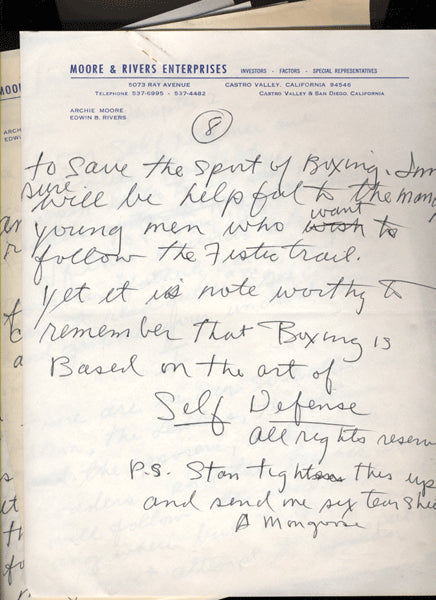 MOORE & RIVERS ENTERPRISES INVESTORS - FACTORS - SPECIAL REPRESENTATIVES
5073 RAY AVENUE CASTRO VALLEY, CALIFORNIA 94546
TELEPHONE 537-6995 - 537-4482 CASTRO VALLEY & SAN DIEGO, CALIFORNIA
ARCHIE MOORE
EDWIN B. RIVERS
8
to save the sport of Boxing. Im
sure
will be helpful to the many
want
young men who wish to
follow the Fistic trail.
Yet it is note worthy to
remember that Boxing is
Based on the art of
Self Defense
all rights reserv
P.S. Stan tighten this up
and send me six tear shee
A Mongoose